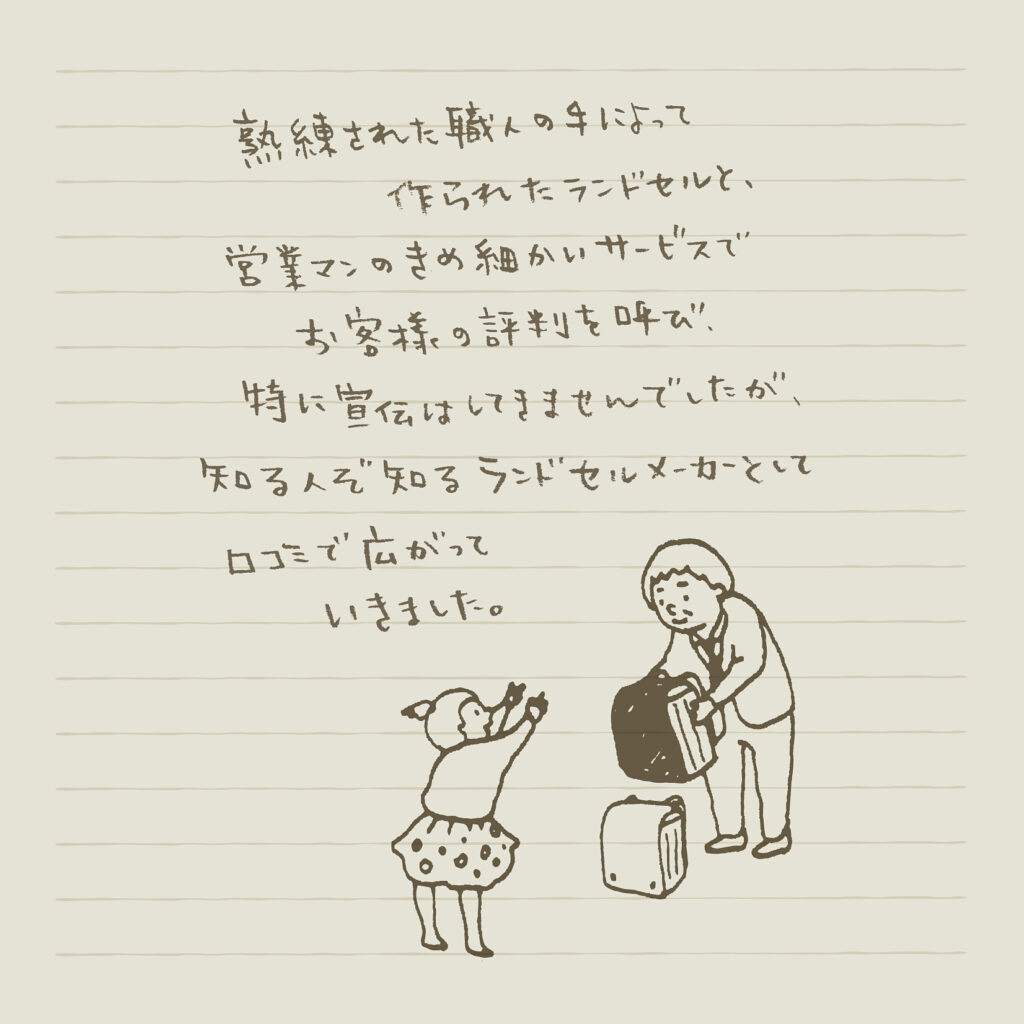 熟練された職人の手によって
作られたランドセルと、
営業マンのきめ細かいサービスで
お客様の評判を呼び、
特に宣伝はしてきませんでしたが、
知る人ぞ知るランドセルメーカーとして
口コミで広がって
いきました。